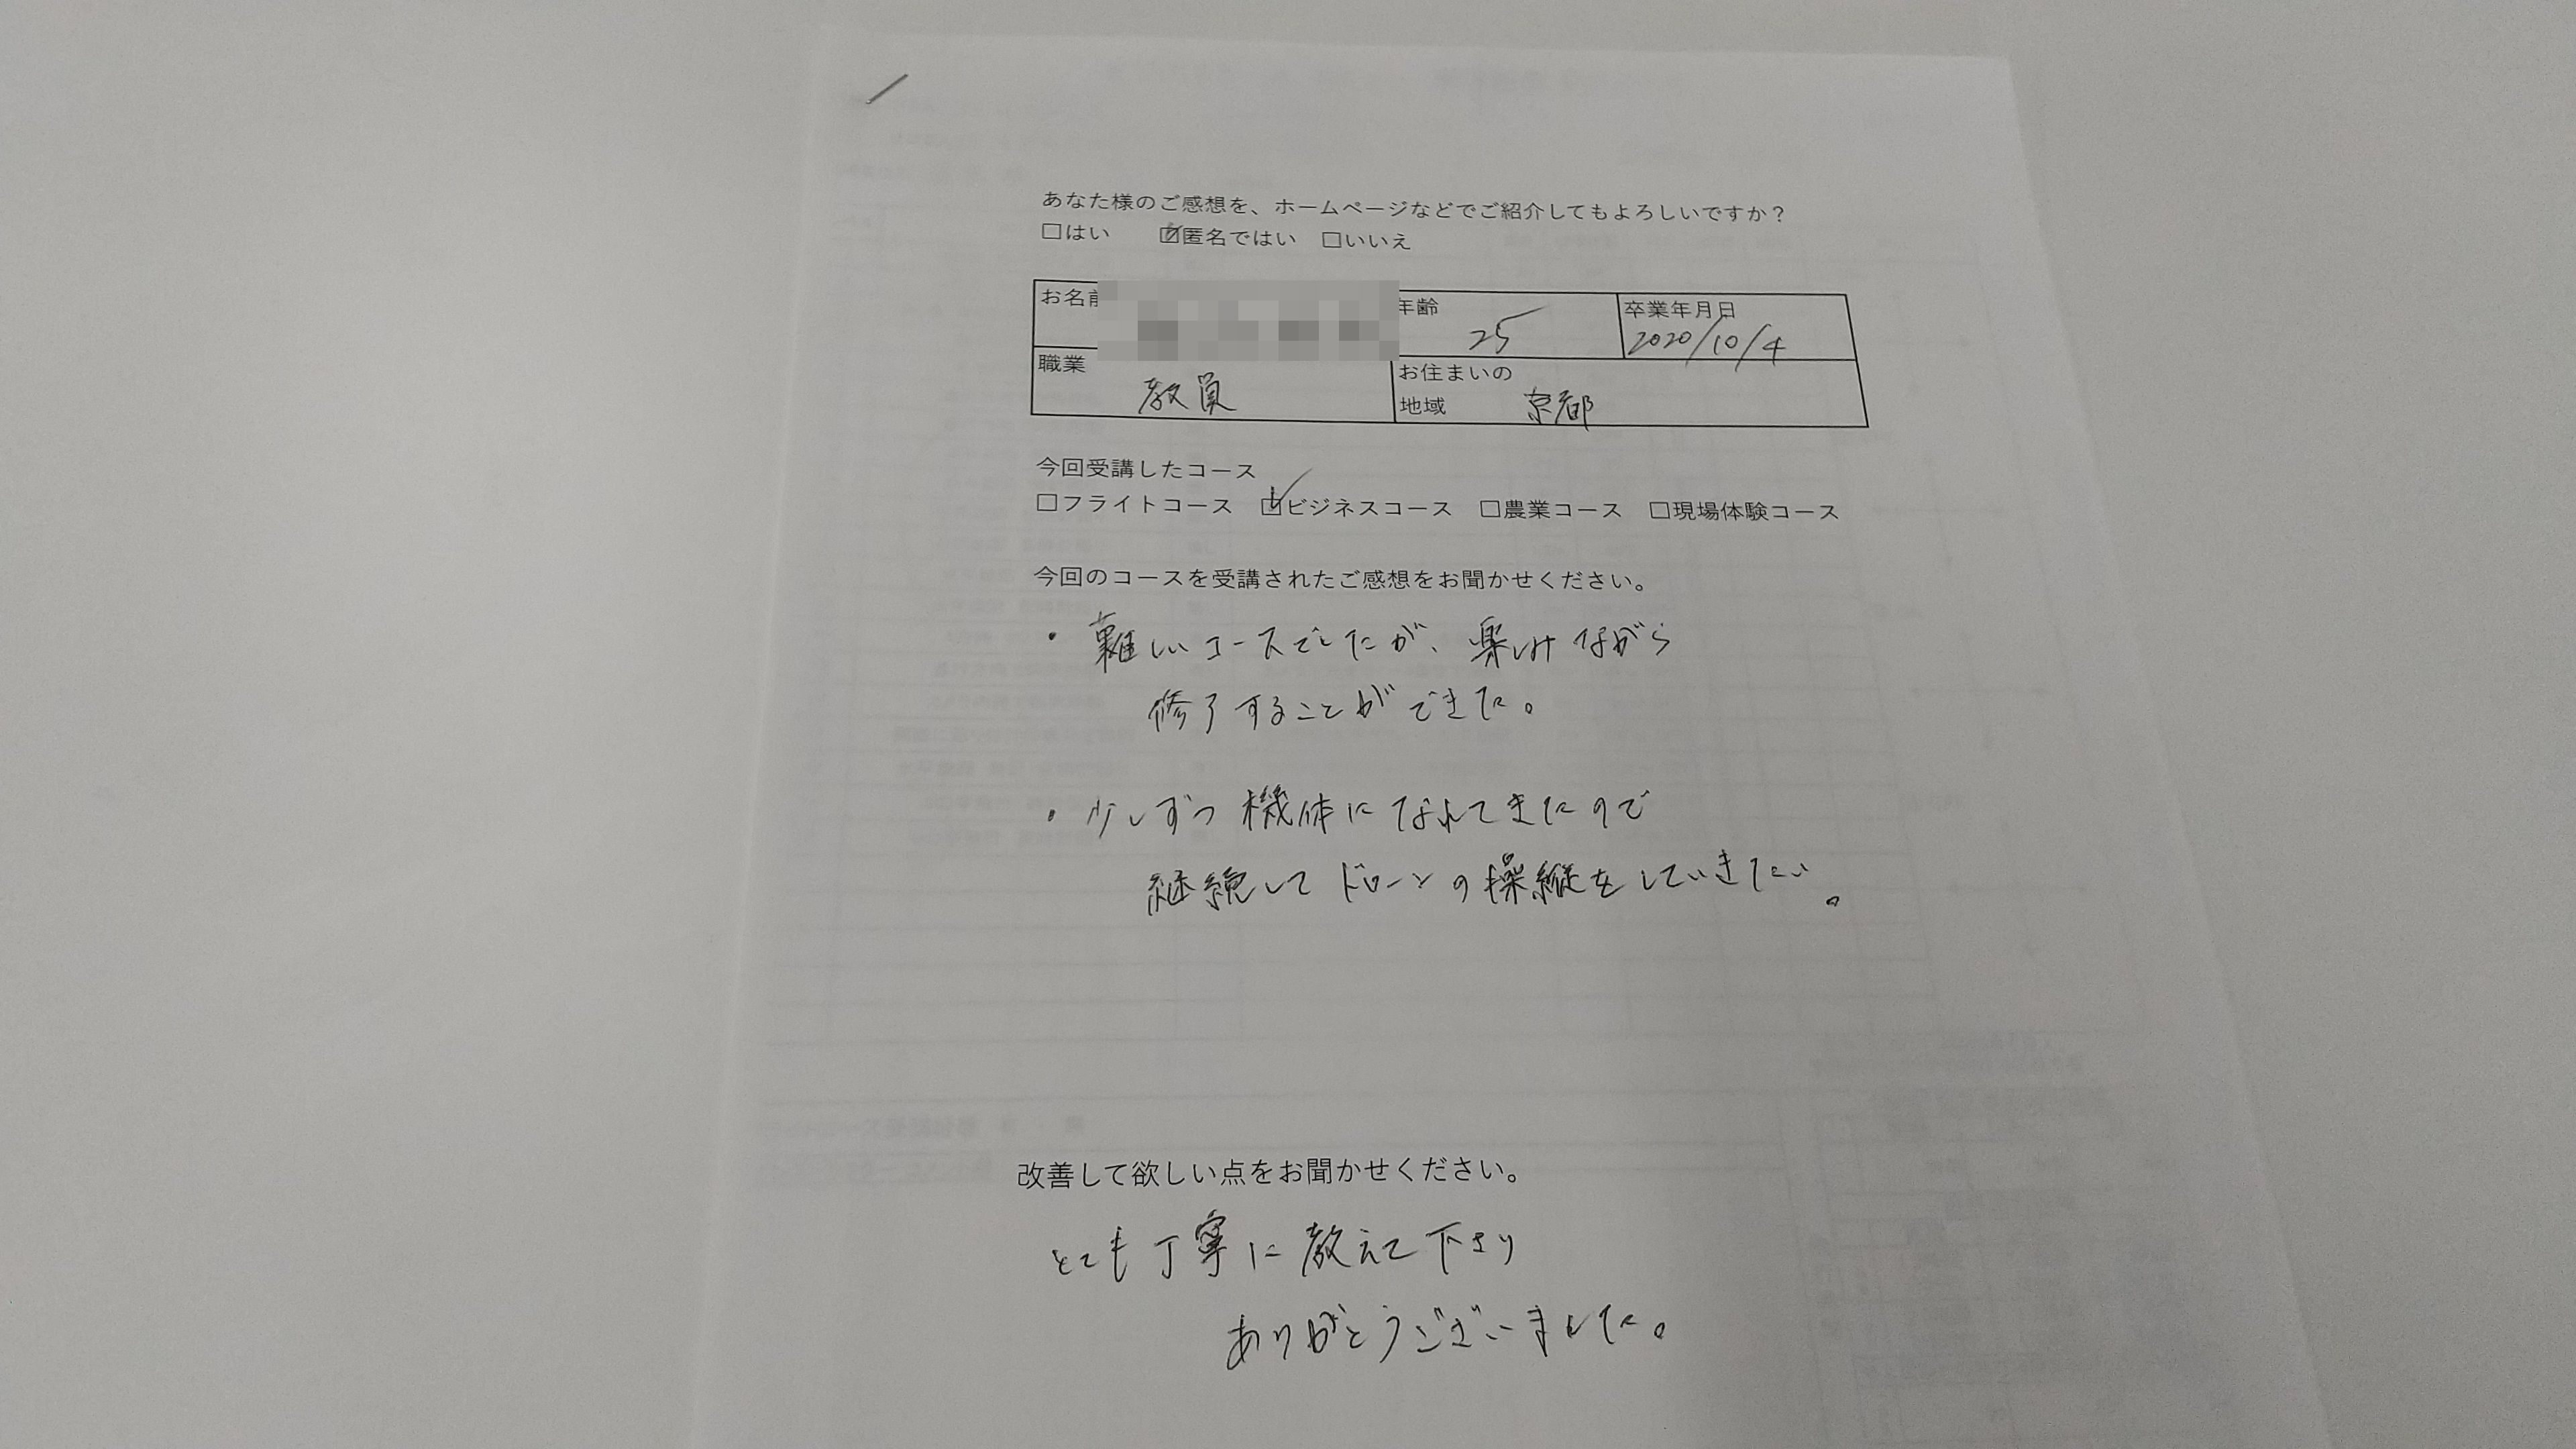 あなた様のご感想を、ホームページなどでご紹介してもよろしいですか？
□はい ☑匿名ではい □いいえ
お名前
年齢 25
卒業年月日 2020/10/4
職業 教員
お住まいの
地域 京都
今回受講したコース
□フライトコース ☑ビジネスコース □農業コース □現場体験コース
今回のコースを受講されたご感想をお聞かせください。
・難しいコースでしたが、楽しみながら
修了することができた。
・少しずつ機体になれてきたので
継続してドローンの操縦をしていきたい。
改善して欲しい点をお聞かせください。
とても丁寧に教えて下さり
ありがとうございました。